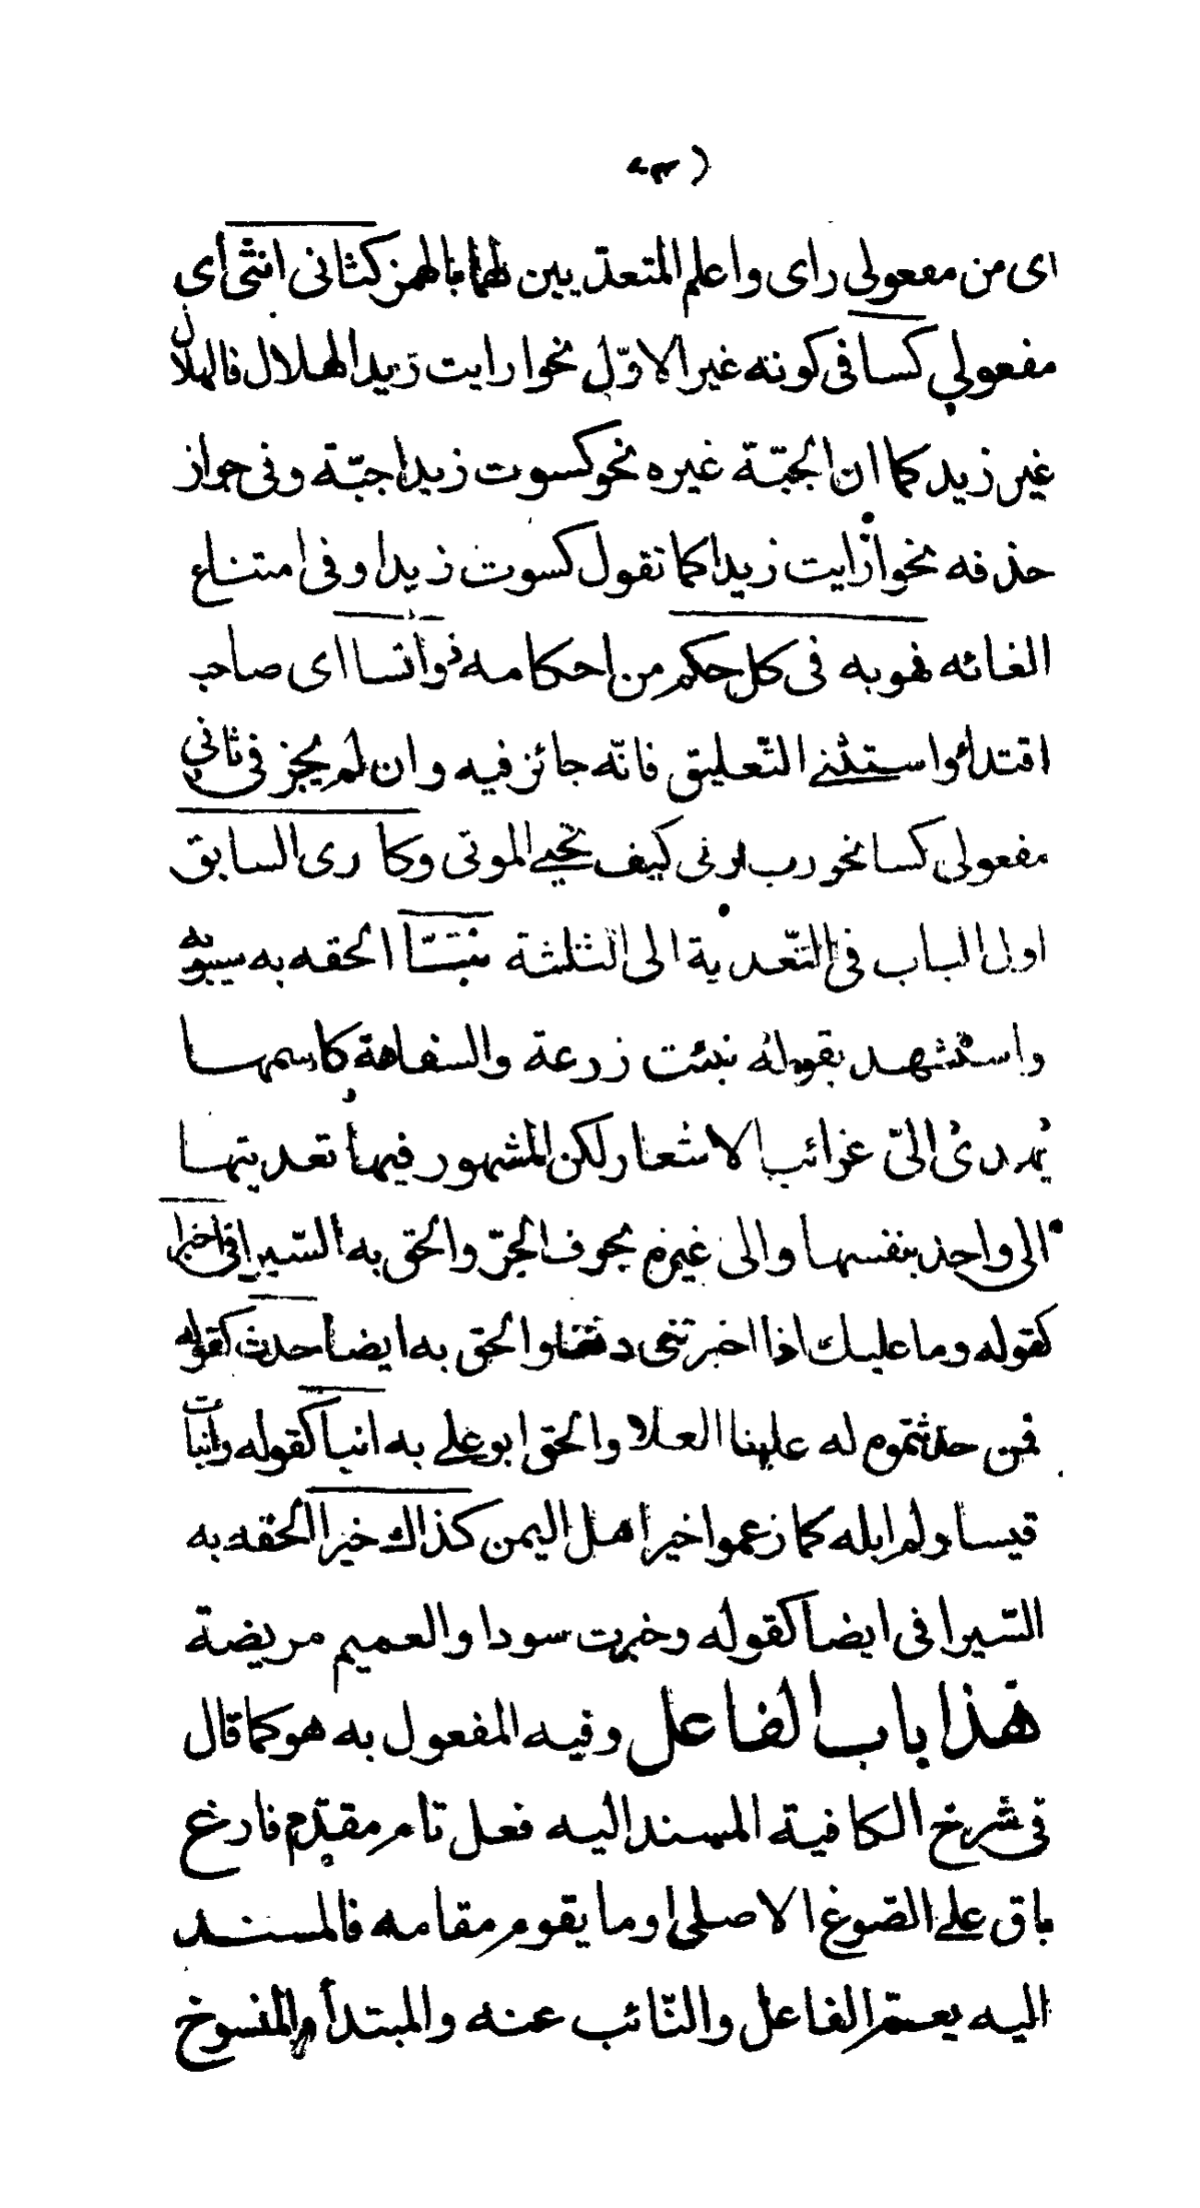 اى من مفعولى راى واعلم المتعديين لهما بالهمز كثانى اثنى أى
مفعولى كسا فى كونه غير الاوّل نحو ارايت زيدا الهلال فالهلال
غير زيد كما ان الجبّة غيره نحو كسوت زيدا جبّة وفى جواز
حذفه نحو ارايت زيدا كما تقول كسوت زيدا وفى امتناع
الغائه فهو به فى كل حكم من احكامه ذو ائتسا اى صاحب
اقتداء واستثنى التّعليق فانّه جائز فيه وان لم يجز فى ثانى
مفعولى كسا نحو رب ارنى كيف تحيى الموتى وكارى السابق
اول الباب فى التّعدية الى الثلثة نبّا الحقه به سيبويه
واستشهد بقوله نبئت زرعة والسفاهة كاسمها
يهدى الىّ غرائب الاشعار لكن المشهور فيها تعديتها
الى واحد بنفسها والى غيره بحرف الجرّ والحق به السّيرافى اخبرا
كقوله وما عليك اذا اخبرتنى دنفا والحق به ايضا حدث كقوله
فمن حدثتموه له علينا العلا والحق ابو على به انبا كقوله وانبات
قيسا ولم ابله كما زعموا خير اهل اليمن كذاك خبرا الحقه به
السّيرافى ايضا كقوله وخبرت سودا والعميم مريضة
هذا باب الفاعل وفيه المفعول به هو كما قال
فى شرح الكافية المسند اليه فعل تام مقدّم فارغ
باق على الصّوغ الاصلى او ما يقوم مقامه فالمسند
اليه يعمّ الفاعل والنّائب عنه والمبتدأ والمنسوخ